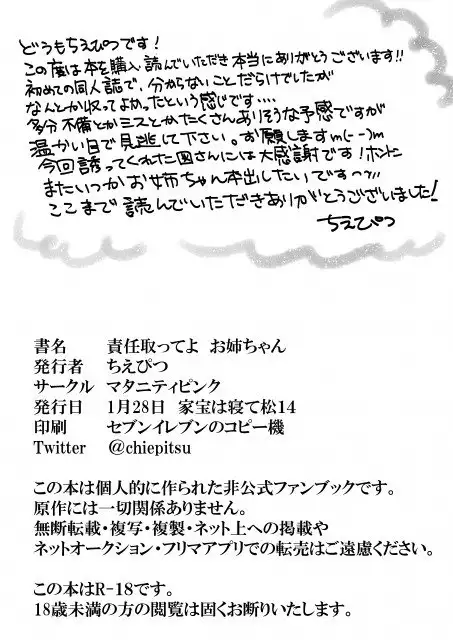 どうもちえぴつです!
この度は本を購入、読んでいただき本当にありがとうございます!!
初めての同人誌で、分からないことだらけでしたが
なんとか収ってよかったという感じです・・・・
多分不備とかミスとかたくさんありそうな予感ですが
温かい目で見逃して下さい。お願しますm(--)m
今回誘ってくれた国さんには大感謝です!ホントに
またいつかお姉ちゃん本出したいですっ
ここまで読んでいただきありがとうございました!
ちえぴつ
書名 責任取ってよ お姉ちゃん
発行者 ちえぴつ
サークル マタニティピンク
発行日 1月28日 家宝は寝て松14
印刷 セブンイレブンのコピー機
Twitter @chiepitsu
この本は個人的に作られた非公式ファンブックです。
原作には一切関係ありません。
無断転載・複写・複製・ネット上への掲載や
ネットオークション・フリマアプリでの転売はご遠慮ください。
この本はR-18です。
18歳未満の方の閲覧は固くお断りいたします。